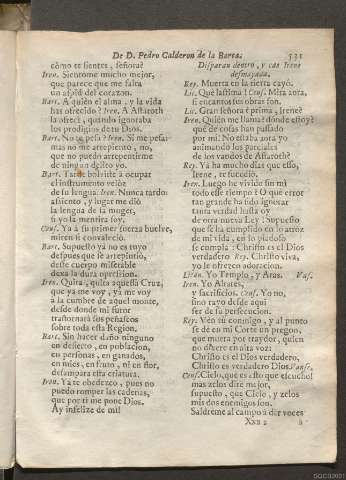 De D. Pedro Calderon de la Barca. 531
cómo te sientes, señora?
Iren. Sientome mucho mejor,
que parece que me falta
un aspid del corazon.
Bart. A quièn el alma, y la vida
has ofrecido? Iren. A Astaroth
la ofrecì, quando ignoraba
los prodigios de tu Dios.
Bart. No te pesa? Iren. Sì me pesa:
mas no me arrepiento, no,
que no puedo arrepentirme
de ningun delito yo.
Bart. Tarde bolviste à ocupar
el instrumento veloz
de su lengua. Iren. Nunca tardo:
assiento, y lugar me diò
la lengua de la muger,
si yo la mentira soy.
Cens. Ya à su primer fuerza buelve,
miren si convaleciò.
Bart. Supuesto yà no es tuyo
despues que se arrepintiò,
desse cuerpo miserable
dexa la dura opression.
Iren. Quita, quita aquessa Cruz,
que yà me voy, yà me voy
à la cumbre de aquel monte,
desde donde mi furor
trastornarà sus peñascos
sobre toda esta Region.
Bart. Sin hacer daño ninguno
en desierto, en poblacion,
en personas, en ganados,
en mies, en fruto, ni en flor,
desampara esta criatura.
Iren. Yà te obedezco, pues no
puedo romper las cadenas,
que por ti me pone Dios.
Ay infelize de mì!
Disparan dentro, y cae Irene
desmayada.
Rey. Muerta en la tierra cayò.
Lic. Què lastima! Cens. Mira aora,
si encantos sus obras son.
Lic. Gran señora è prima, Irene?
Iren. Quièn me llama? dònde estoy?
què de cosas han passado
por mì! No estaba aora yo
animando los parciales
de los vandos de Astaroth?
Rey. Yà ha mucho dias que esso,
Irene, te sucediò.
Iren. Luego he vivido sin mì
todo esse tiempo? O què error
tan grande ha sido ignorar
tanta verdad hasta oy
de otra nueva Ley! Supuesto
que se ha cumplido en lo atroz
de mi vida, en lo piadoso
se cumpla: Christo es el Dios
verdadero. Rey. Christo viva,
yo le ofrezco adoracion.
Yo Templo, y Aras. Vas.
Iren. Yo Altares,
y sacrificios. Cens. Yo no,
sino rayo desde aqui
ser de su persecucion.
Rey. Ven tù conmigo, y al punto
se dè en mi Corte un pregon,
que muera por traydor, quien
no dixere en alta voz:
Christo es el Dios verdadero,
Christo es verdadero Dios. Vanse.
Cens. Cielo, què es esto que escucho!
mas zelos dirè mejor,
supuesto, que Cielo, y zelos
mis dos enemigos son.
Saldrème al campo à dàr voces
Xxx 2 à